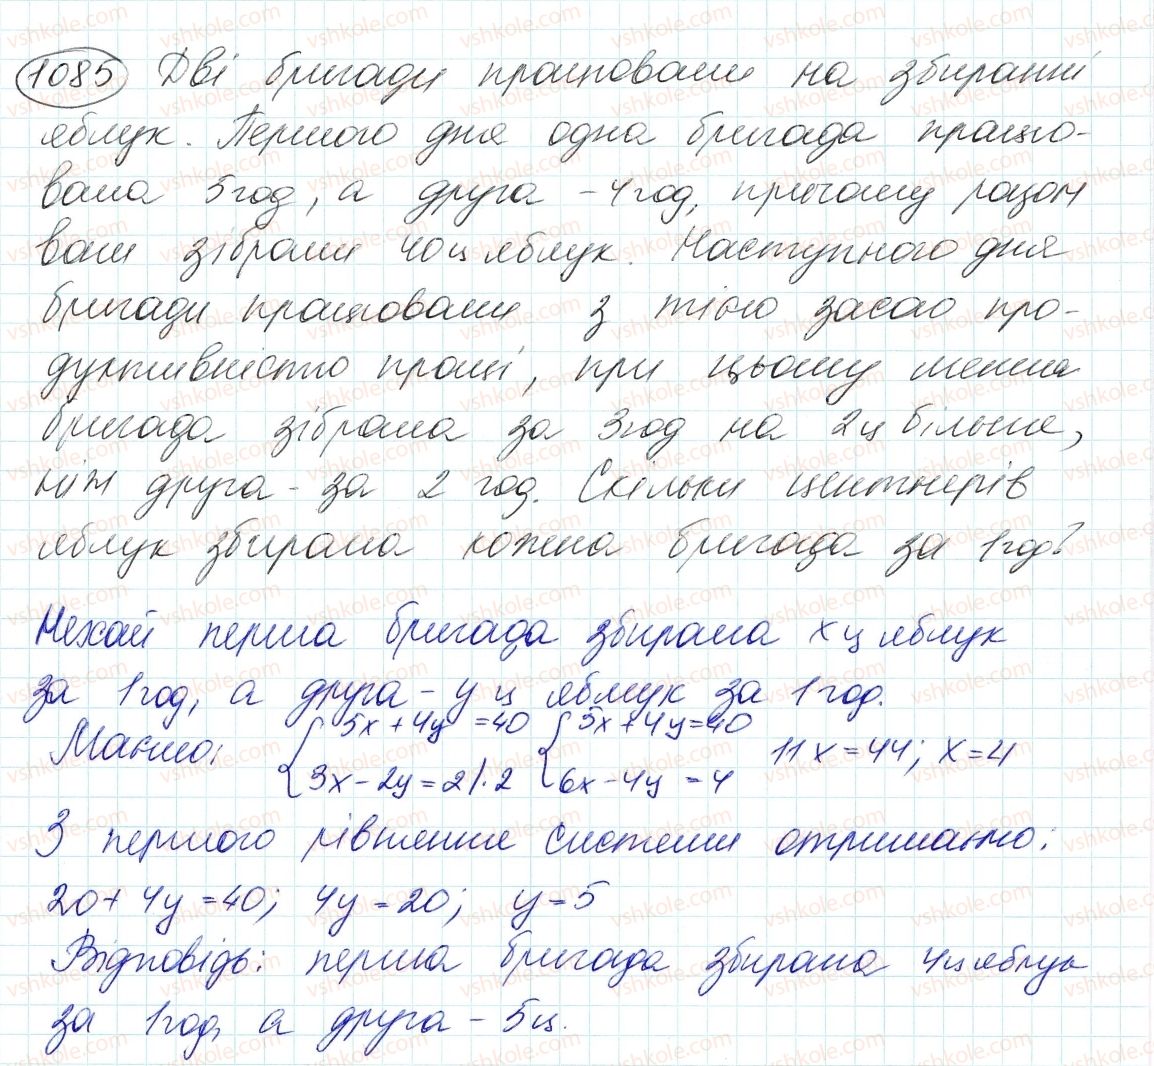 1085 Дві бригади працювали на збиранні
яблук. Першого дня одна бригада працю-
вала 5 год, а друга - 4 год, причому разом
вони зібрали 40 ц яблук. Наступного дня
бригади працювали з тією самою про-
дуктивністю праці, при цьому перша
бригада зібрала за 3 год на 2 ц більше,
ніж друга - за 2 год. Скільки центнерів
яблук збирала кожна бригада за 1 год?
Нехай перша бригада збирала x ц яблук
за 1 год, а друга - y ц яблук за 1 год.
Маємо: { 5x + 4y = 40 { 5x + 4y = 40
3x - 2y = 2 |·2 6x - 4y = 4 11x = 44; x = 4
З першого рівняння системи отримаємо:
20 + 4y = 40; 4y = 20; y = 5
Відповідь: перша бригада збирала 4 ц яблук
за 1 год, а друга - 5 ц.